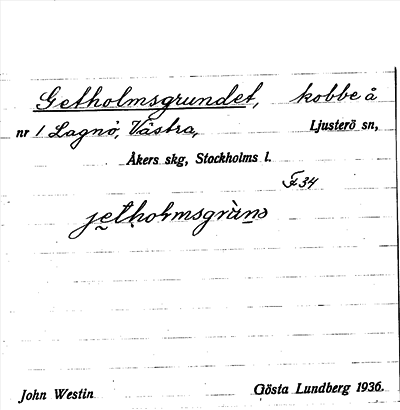 Getholmsgrundet, kobbe å
nr 1 Lagnö, Västra, Ljusterö sn,
Åkers skg, Stockholms l.
F34
jetholmsgràns
John Westin Gösta Lundberg 1936.